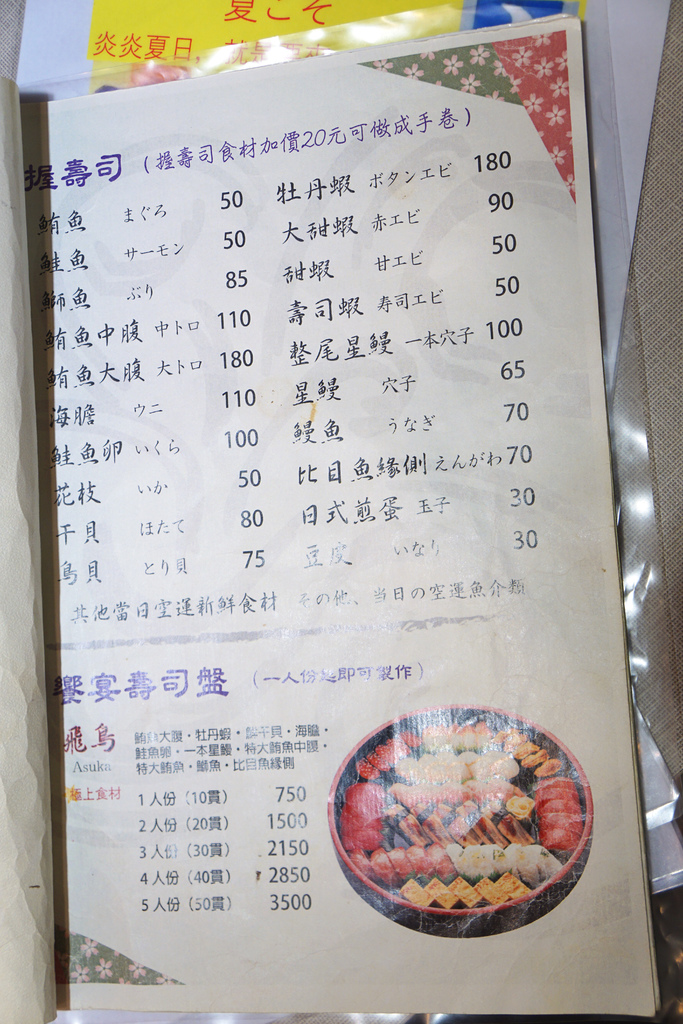 夏こそ
炎炎夏日，就是要
握壽司（握壽司食材加價20元可做成手卷）
鮪魚 まぐろ 50
鮭魚 サーモン 50
鰤魚 ぶり 85
鮪魚中腹 中トロ 110
鮪魚大腹 大トロ 180
海膽 ウニ 110
鮭魚卵 いくら 100
花枝 いか 50
干貝 ほたて 80
鳥貝 とり貝 75
牡丹蝦 ボタンエビ 180
大甜蝦 赤エビ 90
甜蝦 甘エビ 50
壽司蝦 寿司エビ 50
整尾星鰻 一本穴子 100
星鰻 穴子 65
鰻魚 うなぎ 70
比目魚緣側 えんがわ 70
日式煎蛋 玉子 30
豆皮 いなり 30
其他當日空運新鮮食材 その他、当日の空運魚介類
饗宴壽司盤（一人份起即可製作）
飛鳥
Asuka
極上食材
鮪魚大腹・牡丹蝦・鮮干貝・海膽・
鮭魚卵・一本星鰻・特大鮪魚中腹・
特大鮪魚・鰤魚・比目魚緣側
1人份（10貫） 750
2人份（20貫） 1500
3人份（30貫） 2150
4人份（40貫） 2850
5人份（50貫） 3500